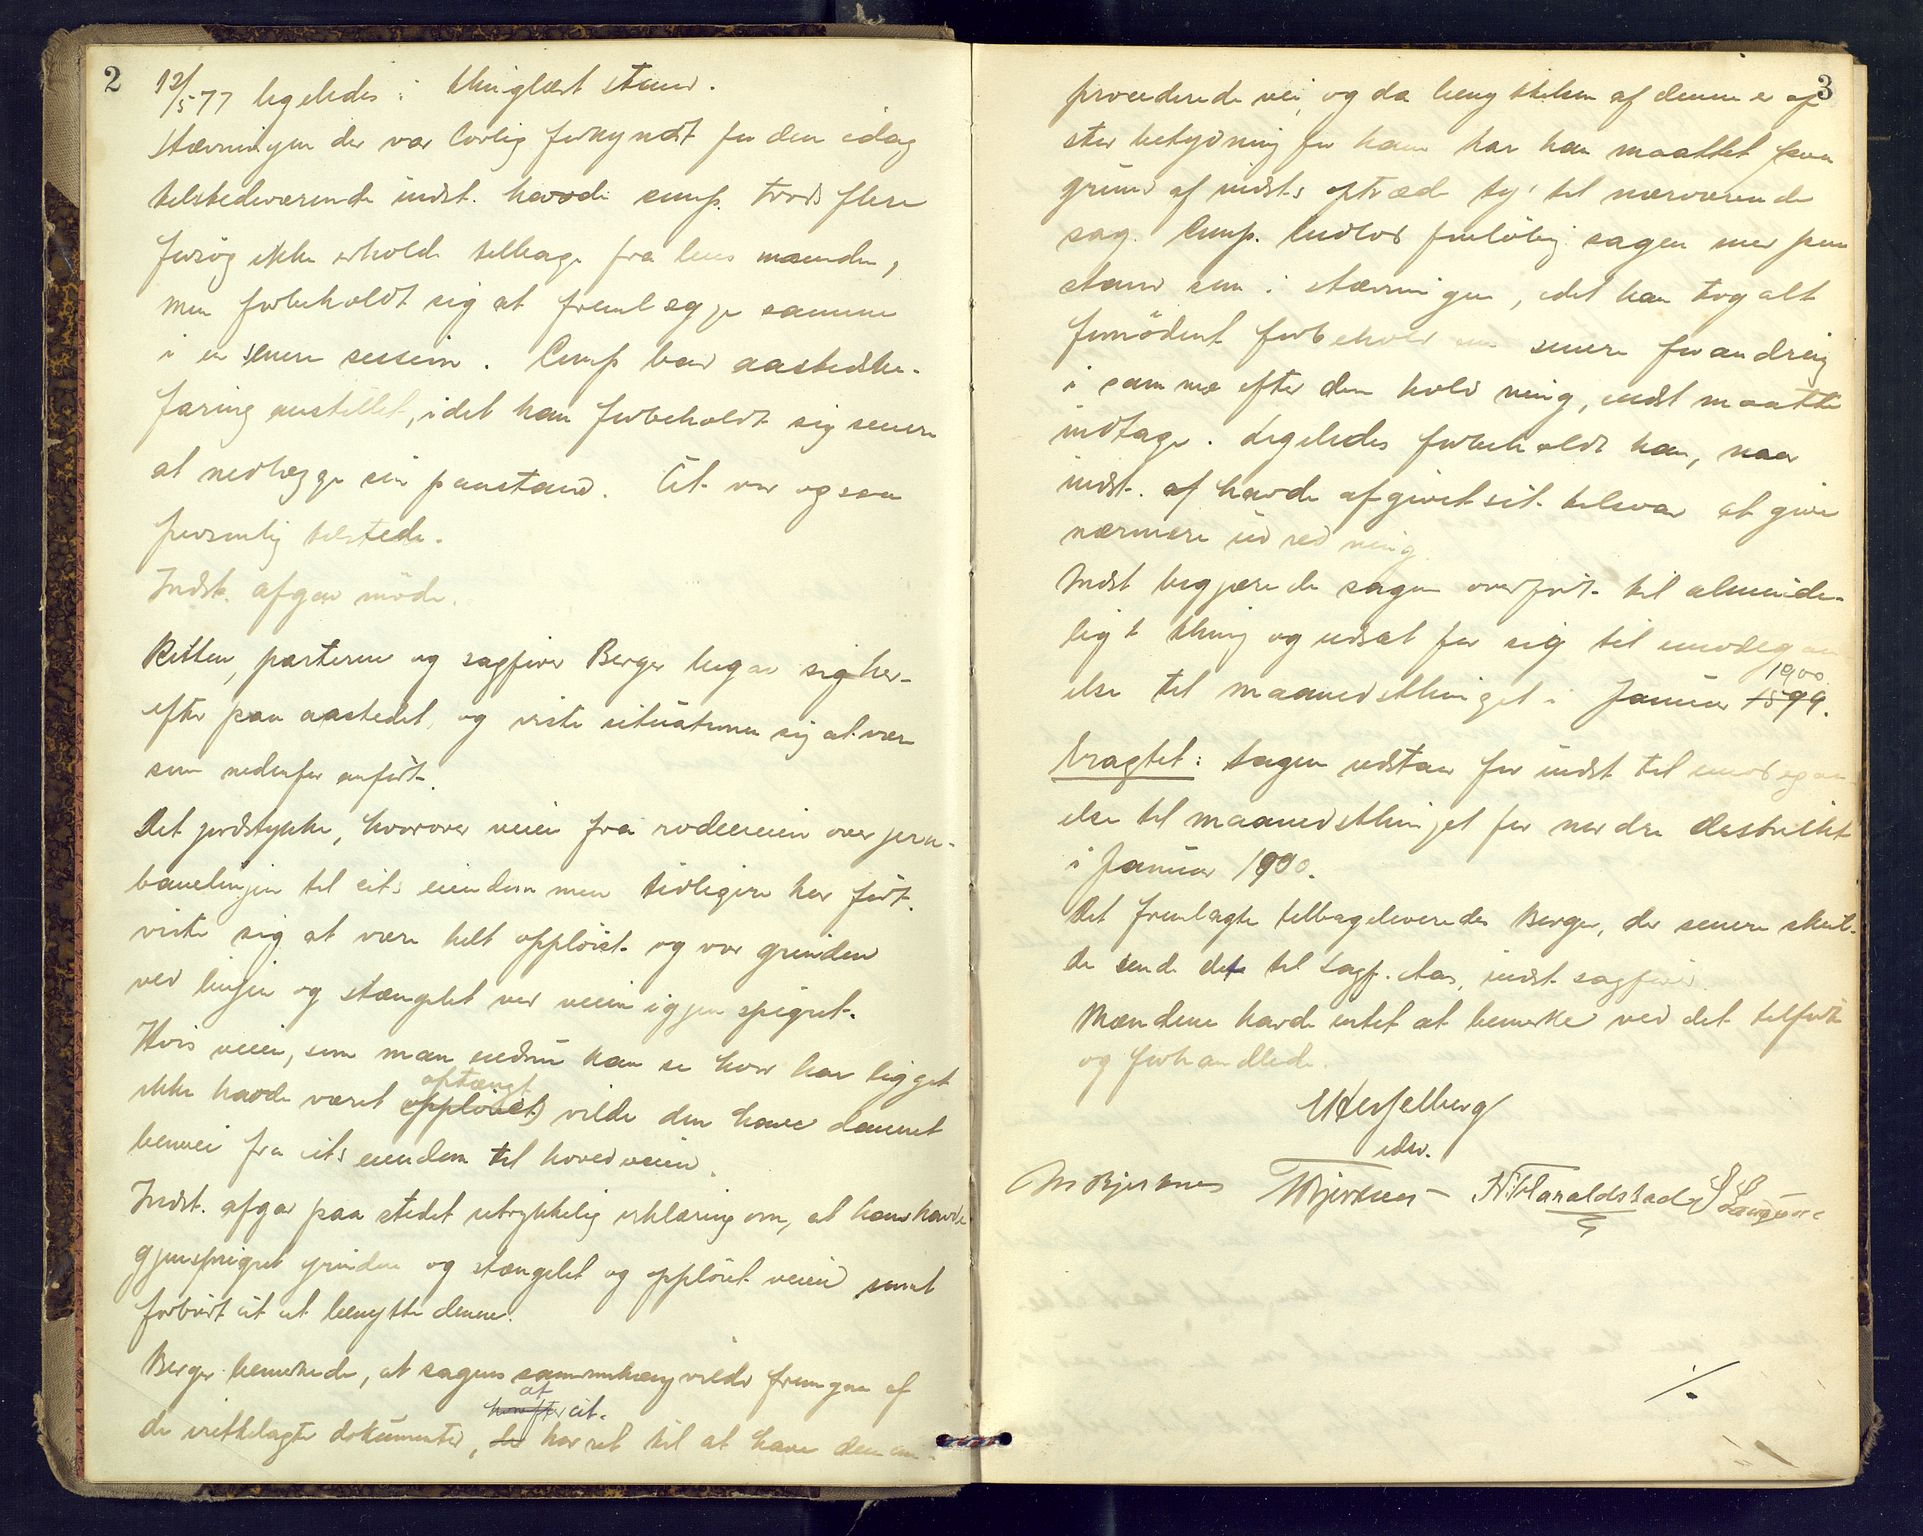 2
12/5 77 ligeledes i thinglæst stand.
Stævningen der var lovlig forkyndt for den idag
tilstedeværende indst. havde comp. trods flere
forsøg ikke erholdt tilbage fra lensmanden,
men forbeholdt sig at fremlægge samme
i en senere session. Comp bad aastedsbe-
faring anstillet, idet han forbeholdt sig senere
at nedlægge sin paastand. Cit. var ogsaa
personlig tilstede.
Indst. afgav møde.
Retten, parterne og sagfører Berger begav sig her-
efter paa aastedet, og viste situationen sig at være
som nedenfor anført.
Det jordstykke, hvorover veien fra rodeveien over jern-
banelinjen til cit.s eiendom men tidligere har ført.
viste sig at være helt oppløiet og var grinden
ved linjen og stængslet ved veien igjen spigret.
Hvis veien, som man endnu kan se hvor har ligget
ikke havde været oppløiet optængt vilde den have dannet
benvei fra cit.s eiendom til hovedveien.
Indst. afgav paa stedet utrykkelig erklæring om, at han havde
gjenspigret grinden og stængslet og oppløiet veien samt
forbudt cit at benytte denne.
Berger bemerkede, at sagens sammenhæng vilde fremgaa af
de irettelagte dokumenter, at cit. har ret til at have den om-
3
procederede vei, og da benyttelsen af denne er af
stor betydning for ham har han maattet paa
grund af indst.s optræde ty til nærværende
sag. Comp. indlod foreløbig sagen med paa
stand som i stævningen, idet han tog alt
fornødent forbehold om senere forandring
i samme efter den holdning, indst maatte
indtage. Ligeledes forbeholdt han, naar
indst. af havde afgivet sit tilsvar at give
nærmere udredning.
Indst begjærede sagen overført til alminde-
ligt thing og udsat for sig til imødegaa-
else til maanedsthinget i Januar 1899. 1900.
Eragtet: Sagen udstaar for indst til imødegaa
else til maanedsthinget for nordre distrikt
i Januar 1900.
Det fremlagte tilbageleveredes Berger, der senere skul-
de sende det til sagf. Aas, indst. sagfører.
Mændene havde intet at bemerke ved det tilførte
og forhandlede.
Hesselberg
edsv.
N. Haraldstad